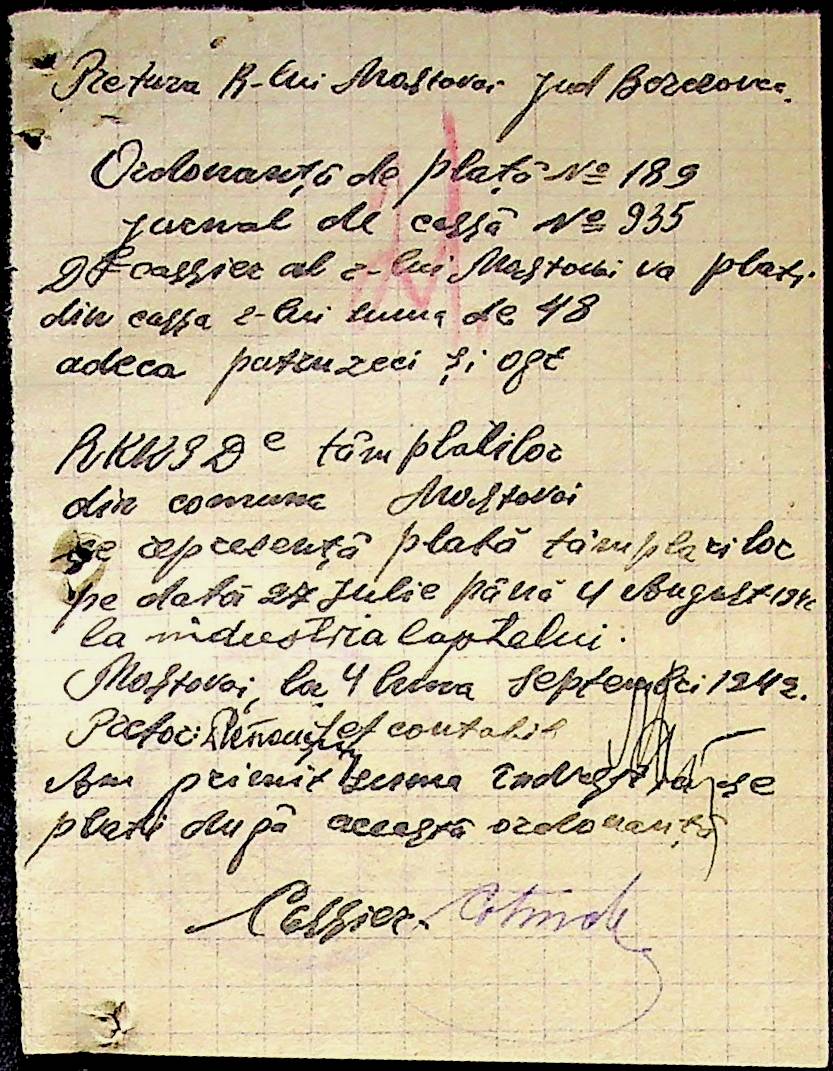 Pretura R-lui Mostovoi jud Berezovca.
Ordonanță de plată № 189
jurnal de cassă № 935
Dl cassier al r-lui Mostovoi va plati
din cassa r-lui suma de 48
adeca patruzeci și opt
RKKS De tâmplatilor
din comuna Mostovoi
ce represență plată tâmplarilor
pe dată 27 Julie până 4 August 1942
la industria laptelui.
Mostovoi, la 4 luna Septembri 1942.
Pretor: Șef contabil
Am primit suma se
plati după aceasta ordonanță
Cassier